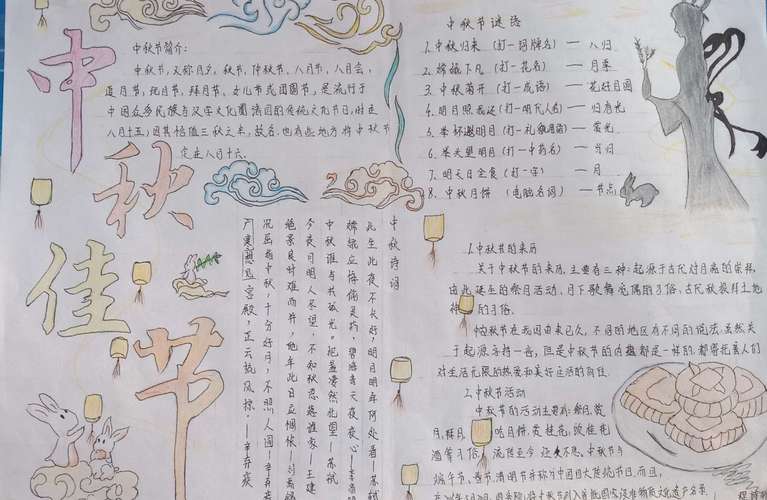 中秋佳节
中秋节简介:
中秋节,又称月夕、秋节、仲秋节、八月节、八月会、
追月节、玩月节、拜月节、女儿节或团圆节,是流行于
中国众多民族与汉字文化圈诸国的传统文化节日,时在
八月十五;因其恰值三秋之半,故名,也有些地方将中秋节
定在八月十六。
中秋节谜语
1. 中秋归来 (打一词牌名) — 八归
2. 嫦娥下凡 (打一花名) — 月季
3. 中秋菊开 (打一成语) — 花好月圆
4. 明月照我还(打一明代人名) — 归有光
5. 举杯邀明月(打一礼貌用语) — 赏光
6. 举头望明月(打一中药名) — 当归
7. 明天日全食(打一字) — 月
8. 中秋月饼 (电脑名词) — 节点
中秋诗词
此生此夜不长好,明月明年何处看—苏轼
嫦娥应悔偷灵药,碧海青天夜夜心—李商隐
中秋谁与共孤光。把盏凄然北望—苏轼
今夜月明人尽望,不知秋思落谁家—王建
绝景良时难再并,他年此日应惆怅—刘禹锡
况屈指中秋,十分好月,不照人圆—辛弃疾
广寒宫殿,正云梳风掠—辛弃疾
1.中秋节的来历
关于中秋节的来历,主要有三种:起源于古代对月亮的崇拜,
由此诞生的祭月活动、月下歌舞觅偶的习俗、古代秋报拜土地
神的习俗。
中秋节在我国由来已久,不同的地区有不同的说法,虽然关
于起源各持一言,但是中秋节的内涵都是一样的,都寄托着人们
对生活无限的热爱和美好生活的向往。
2.中秋节活动
中秋节的活动主要为:祭月、赏
月、拜月、吃月饼、赏桂花、饮桂花
酒等习俗。流传至今,经久不息,中秋节与
端午节、春节、清明节并称为中国四大传统节日,而且,